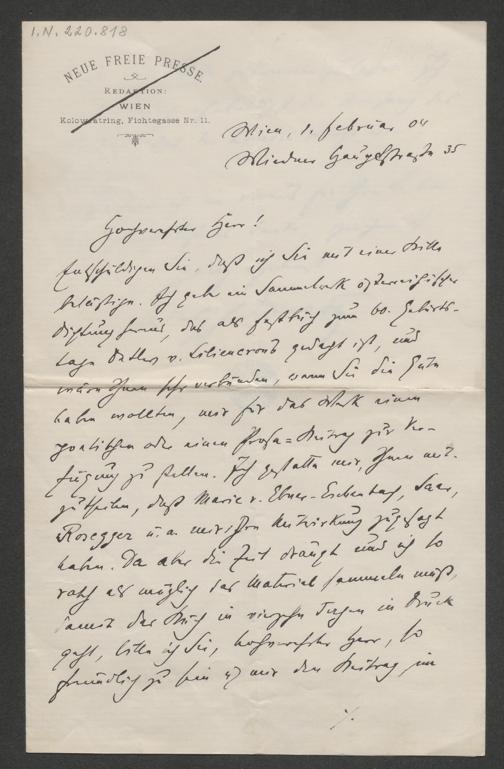 I.N. 220.818
NEUE FREIE PRESSE.
REDAKTION:
WIEN
Kolowratring, Fichtegasse Nr. 11.
Wien, 1. Februar 04
Wiedner Hauptstraße 35
Hochverehrter Herr!
Entschuldigen Sie, daß ich Sie mit einer Bitte
belästige. Ich gebe ein Sammelwerk österreichischer
Dichtung heraus, das als Festbuch zum 60. Geburts-
tage Detlev v. Liliencrons gedacht ist, und
wäre Ihnen sehr verbunden, wenn Sie die Güte
haben wollten, mir für das Werk einen
poetischen oder einen Prosa=Beitrag zur Ver-
fügung zu stellen. Ich gestatte mir, Ihnen mit-
zutheilen, daß Marie v. Ebner-Eschenbach, Saar,
Rosegger u. a. mir ihre Mitwirkung zugesagt
haben. Da aber die Zeit drängt und ich so
rasch als möglich das Material sammeln muß,
damit das Buch in vierzehn Tagen in Druck
geht, bitte ich Sie, hochverehrter Herr, so
freundlich zu sein u mir den Beitrag, im
./.